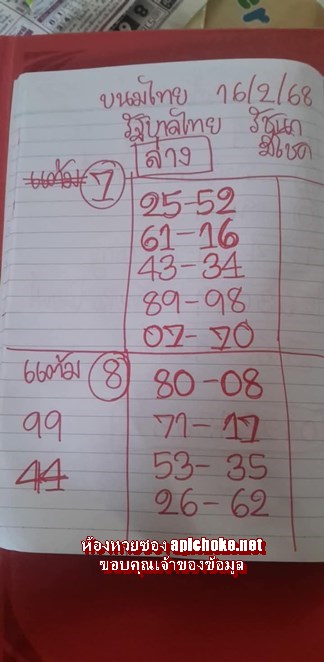 ขนมไทย 16/2/68
รัฐบาลไทย รัชนก
มีโชค
ล่าง
แต้ม 7
25-52
61-16
43-34
89-98
07-70
แต้ม 8
80-08
99
71-17
44
53-35
26-62
ห้องหวยซอง aplchoke.net
ขอบคุณเจ้าของข้อมูล